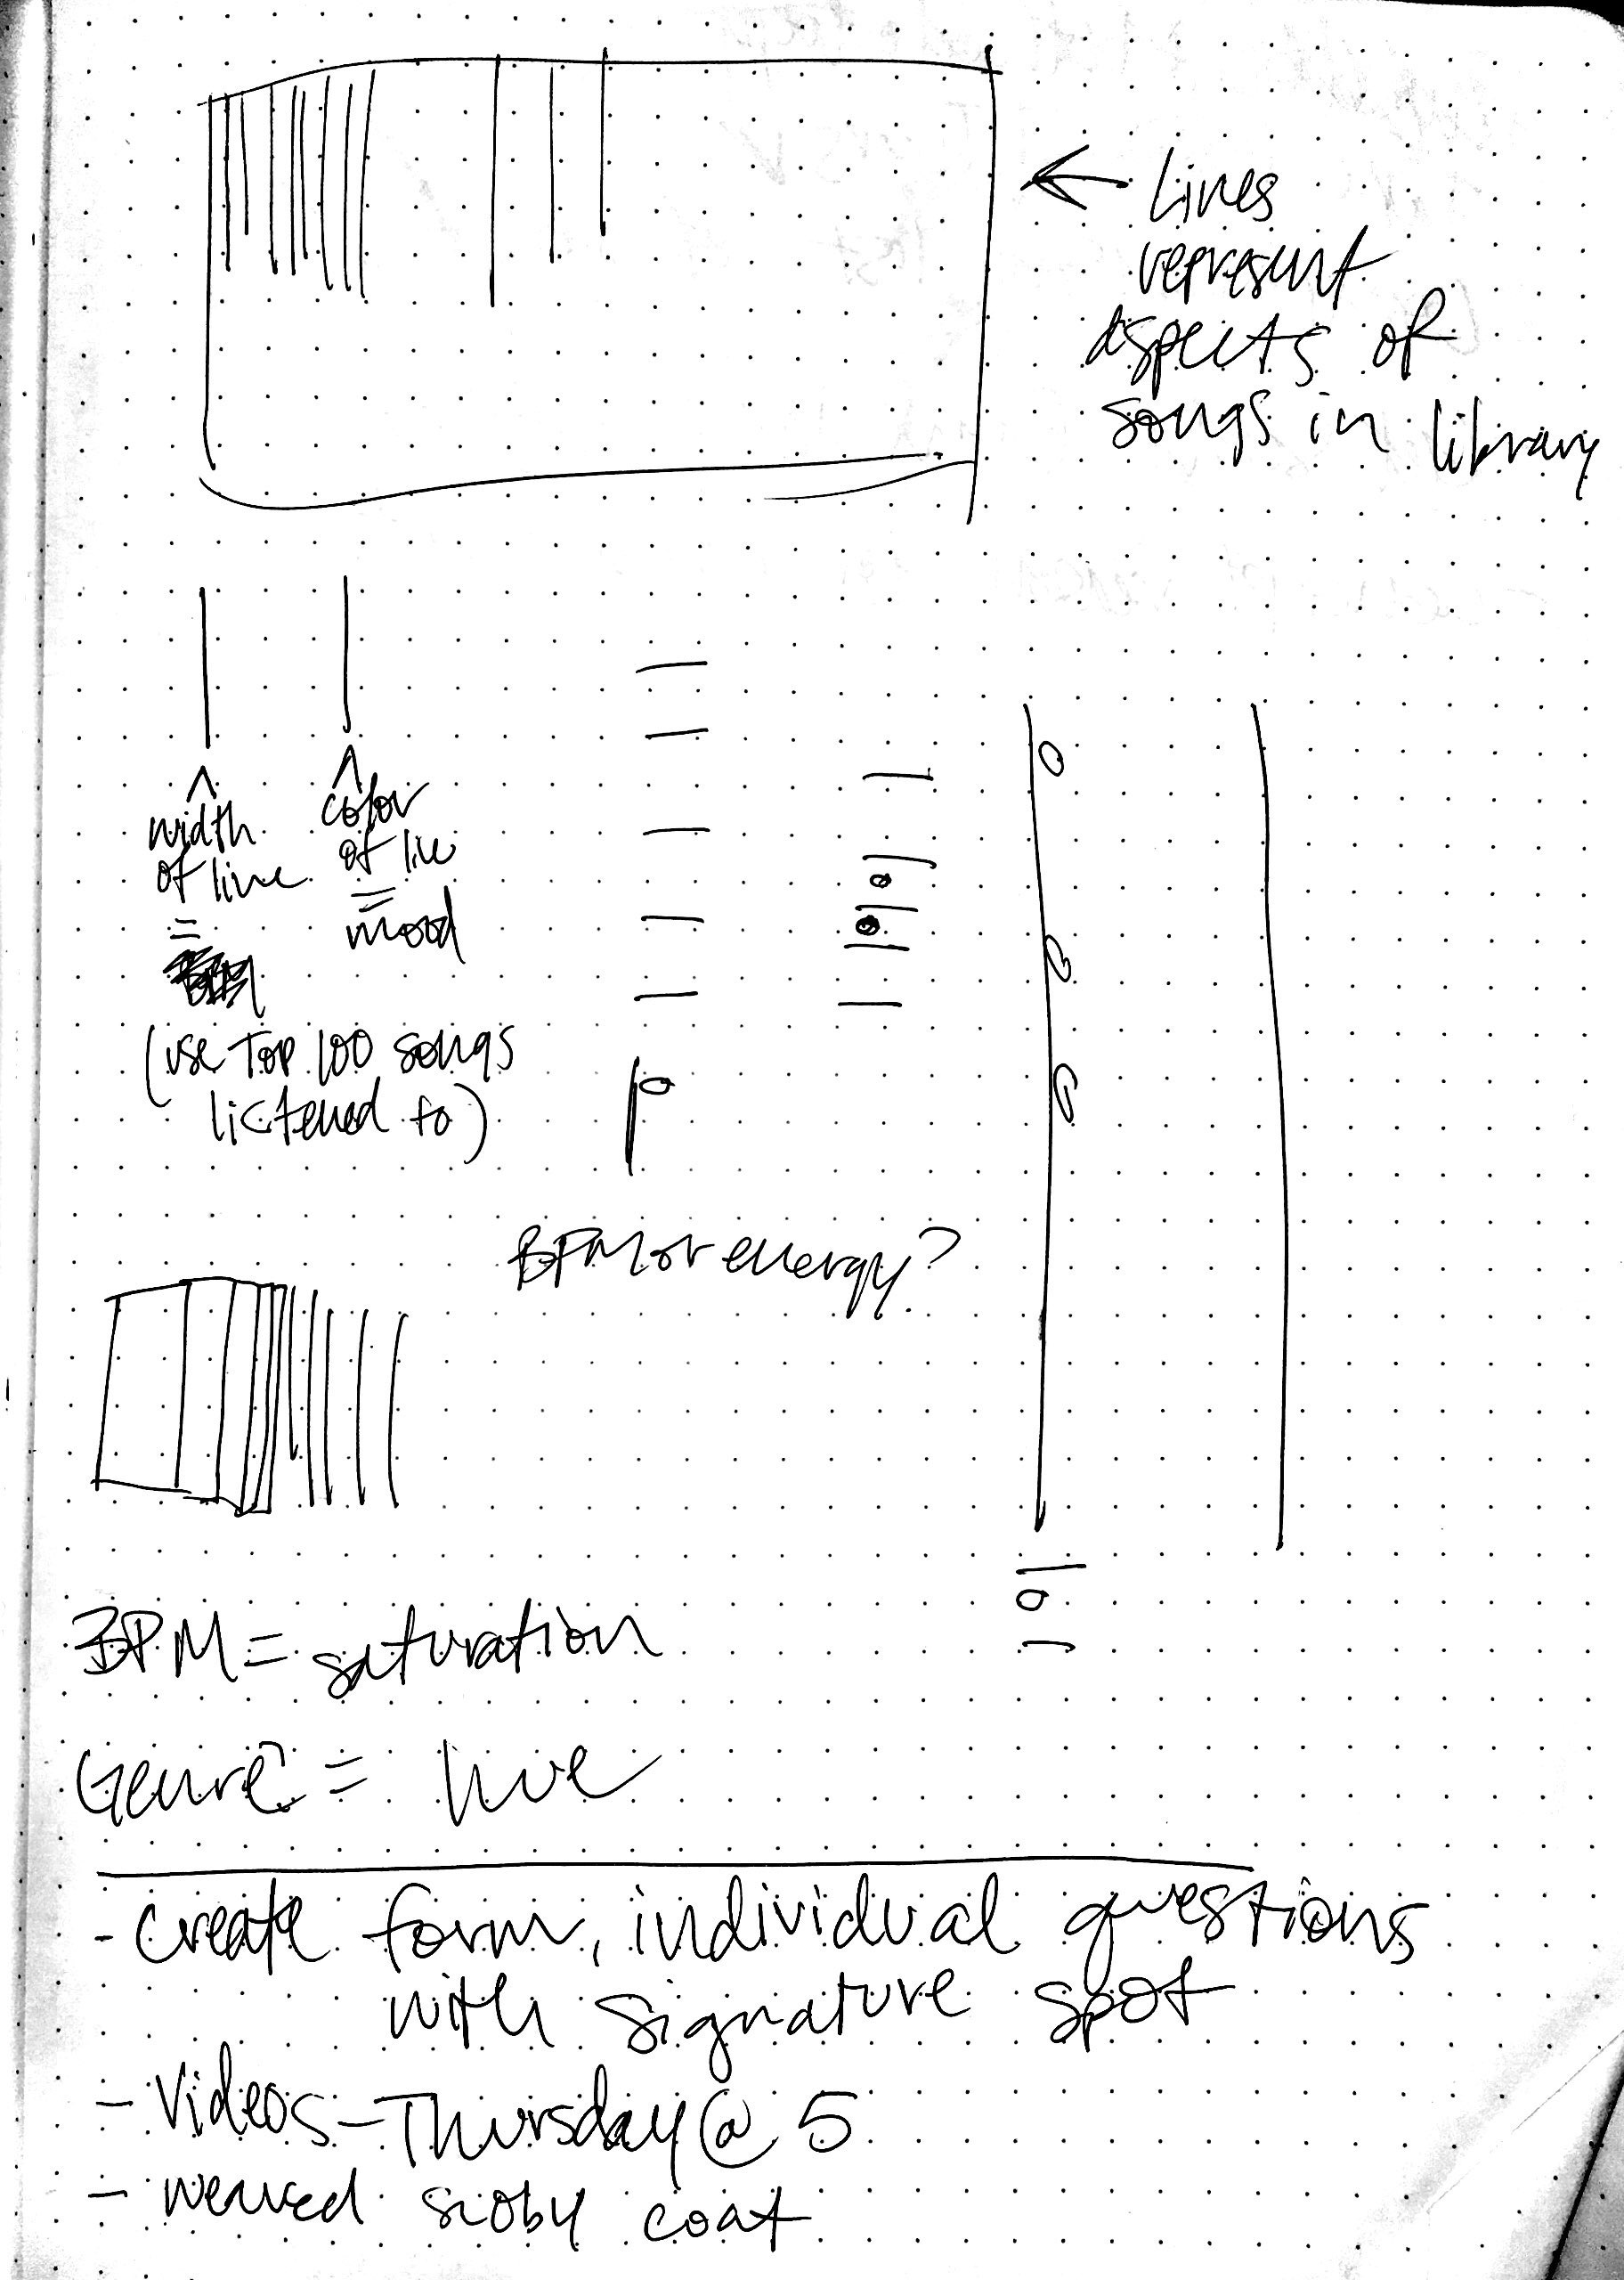 ← Lines
represent
aspects of
songs in library
width
of line
=
BPM
(use Top 100 songs
listened to)
color
of line
=
mood
BPM or energy?
BPM = saturation
Genre = hue
- create form, individual questions
with signature spot
- Videos - Thursday @ 5
- coat